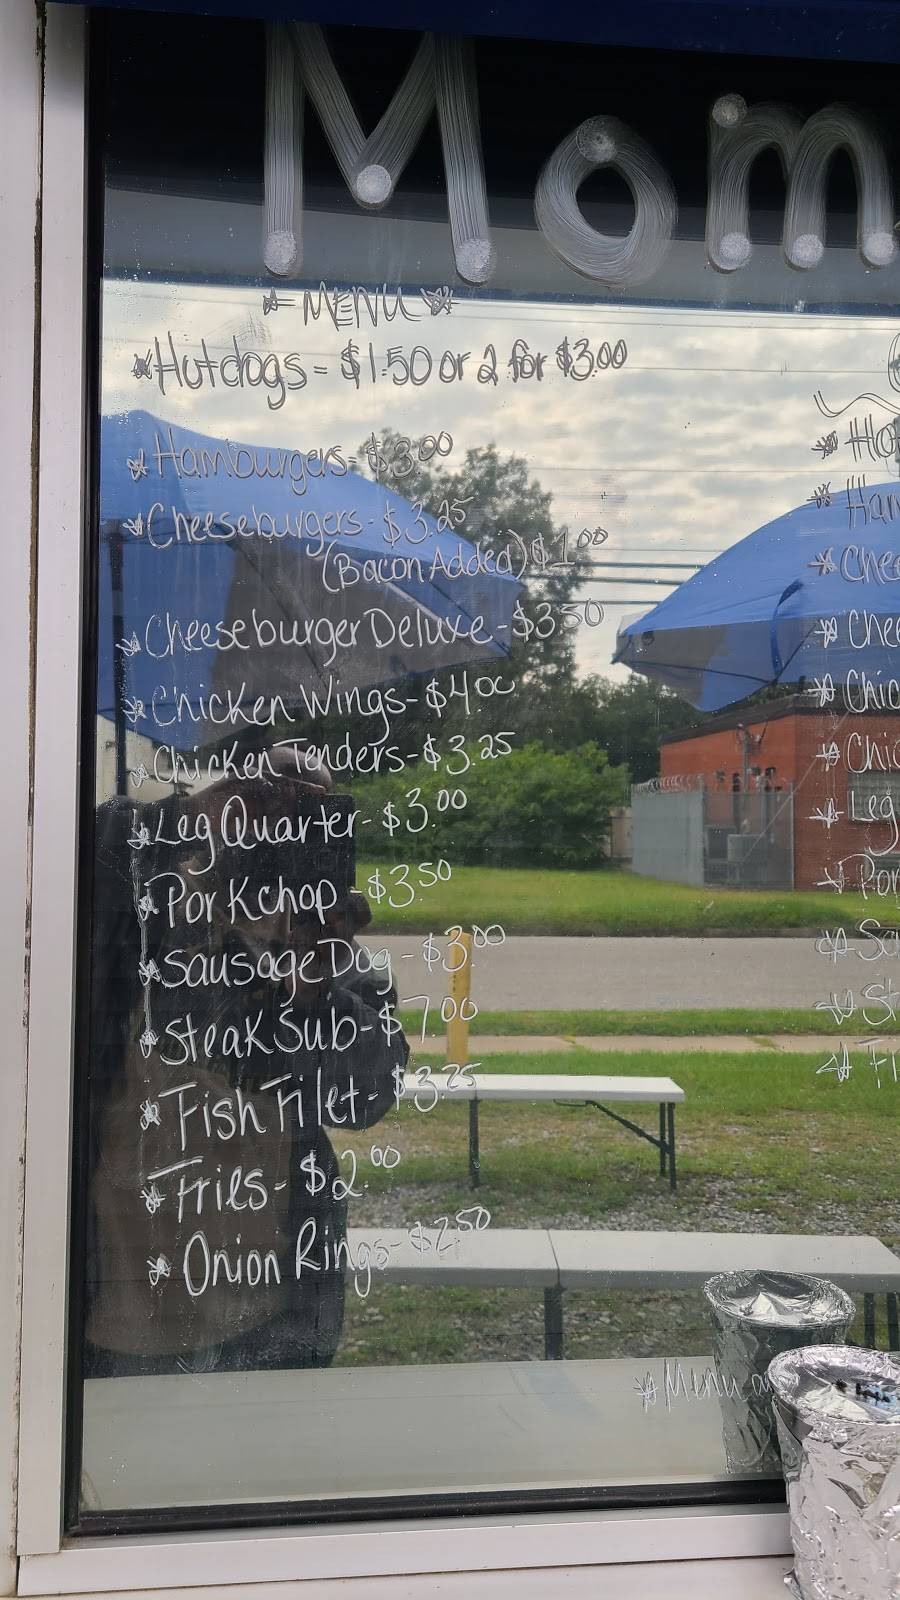 Mom
MENU
Hotdogs = $1.50 or 2 for $3.00
Hamburgers = $3.00
Cheeseburgers - $3.25
(Bacon Added) $1.00
Cheeseburger Deluxe - $3.50
Chicken Wings - $4.00
Chicken Tenders - $3.25
Leg Quarter - $3.00
Porkchop - $3.50
Sausage Dog - $3.00
Steak Sub - $7.00
Fish Filet - $3.25
Fries - $2.00
Onion Rings - $2.50
Ho
Ham
Chee
Chee
Chic
Chic
Leg
Por
Sa
St
Fi
Menu